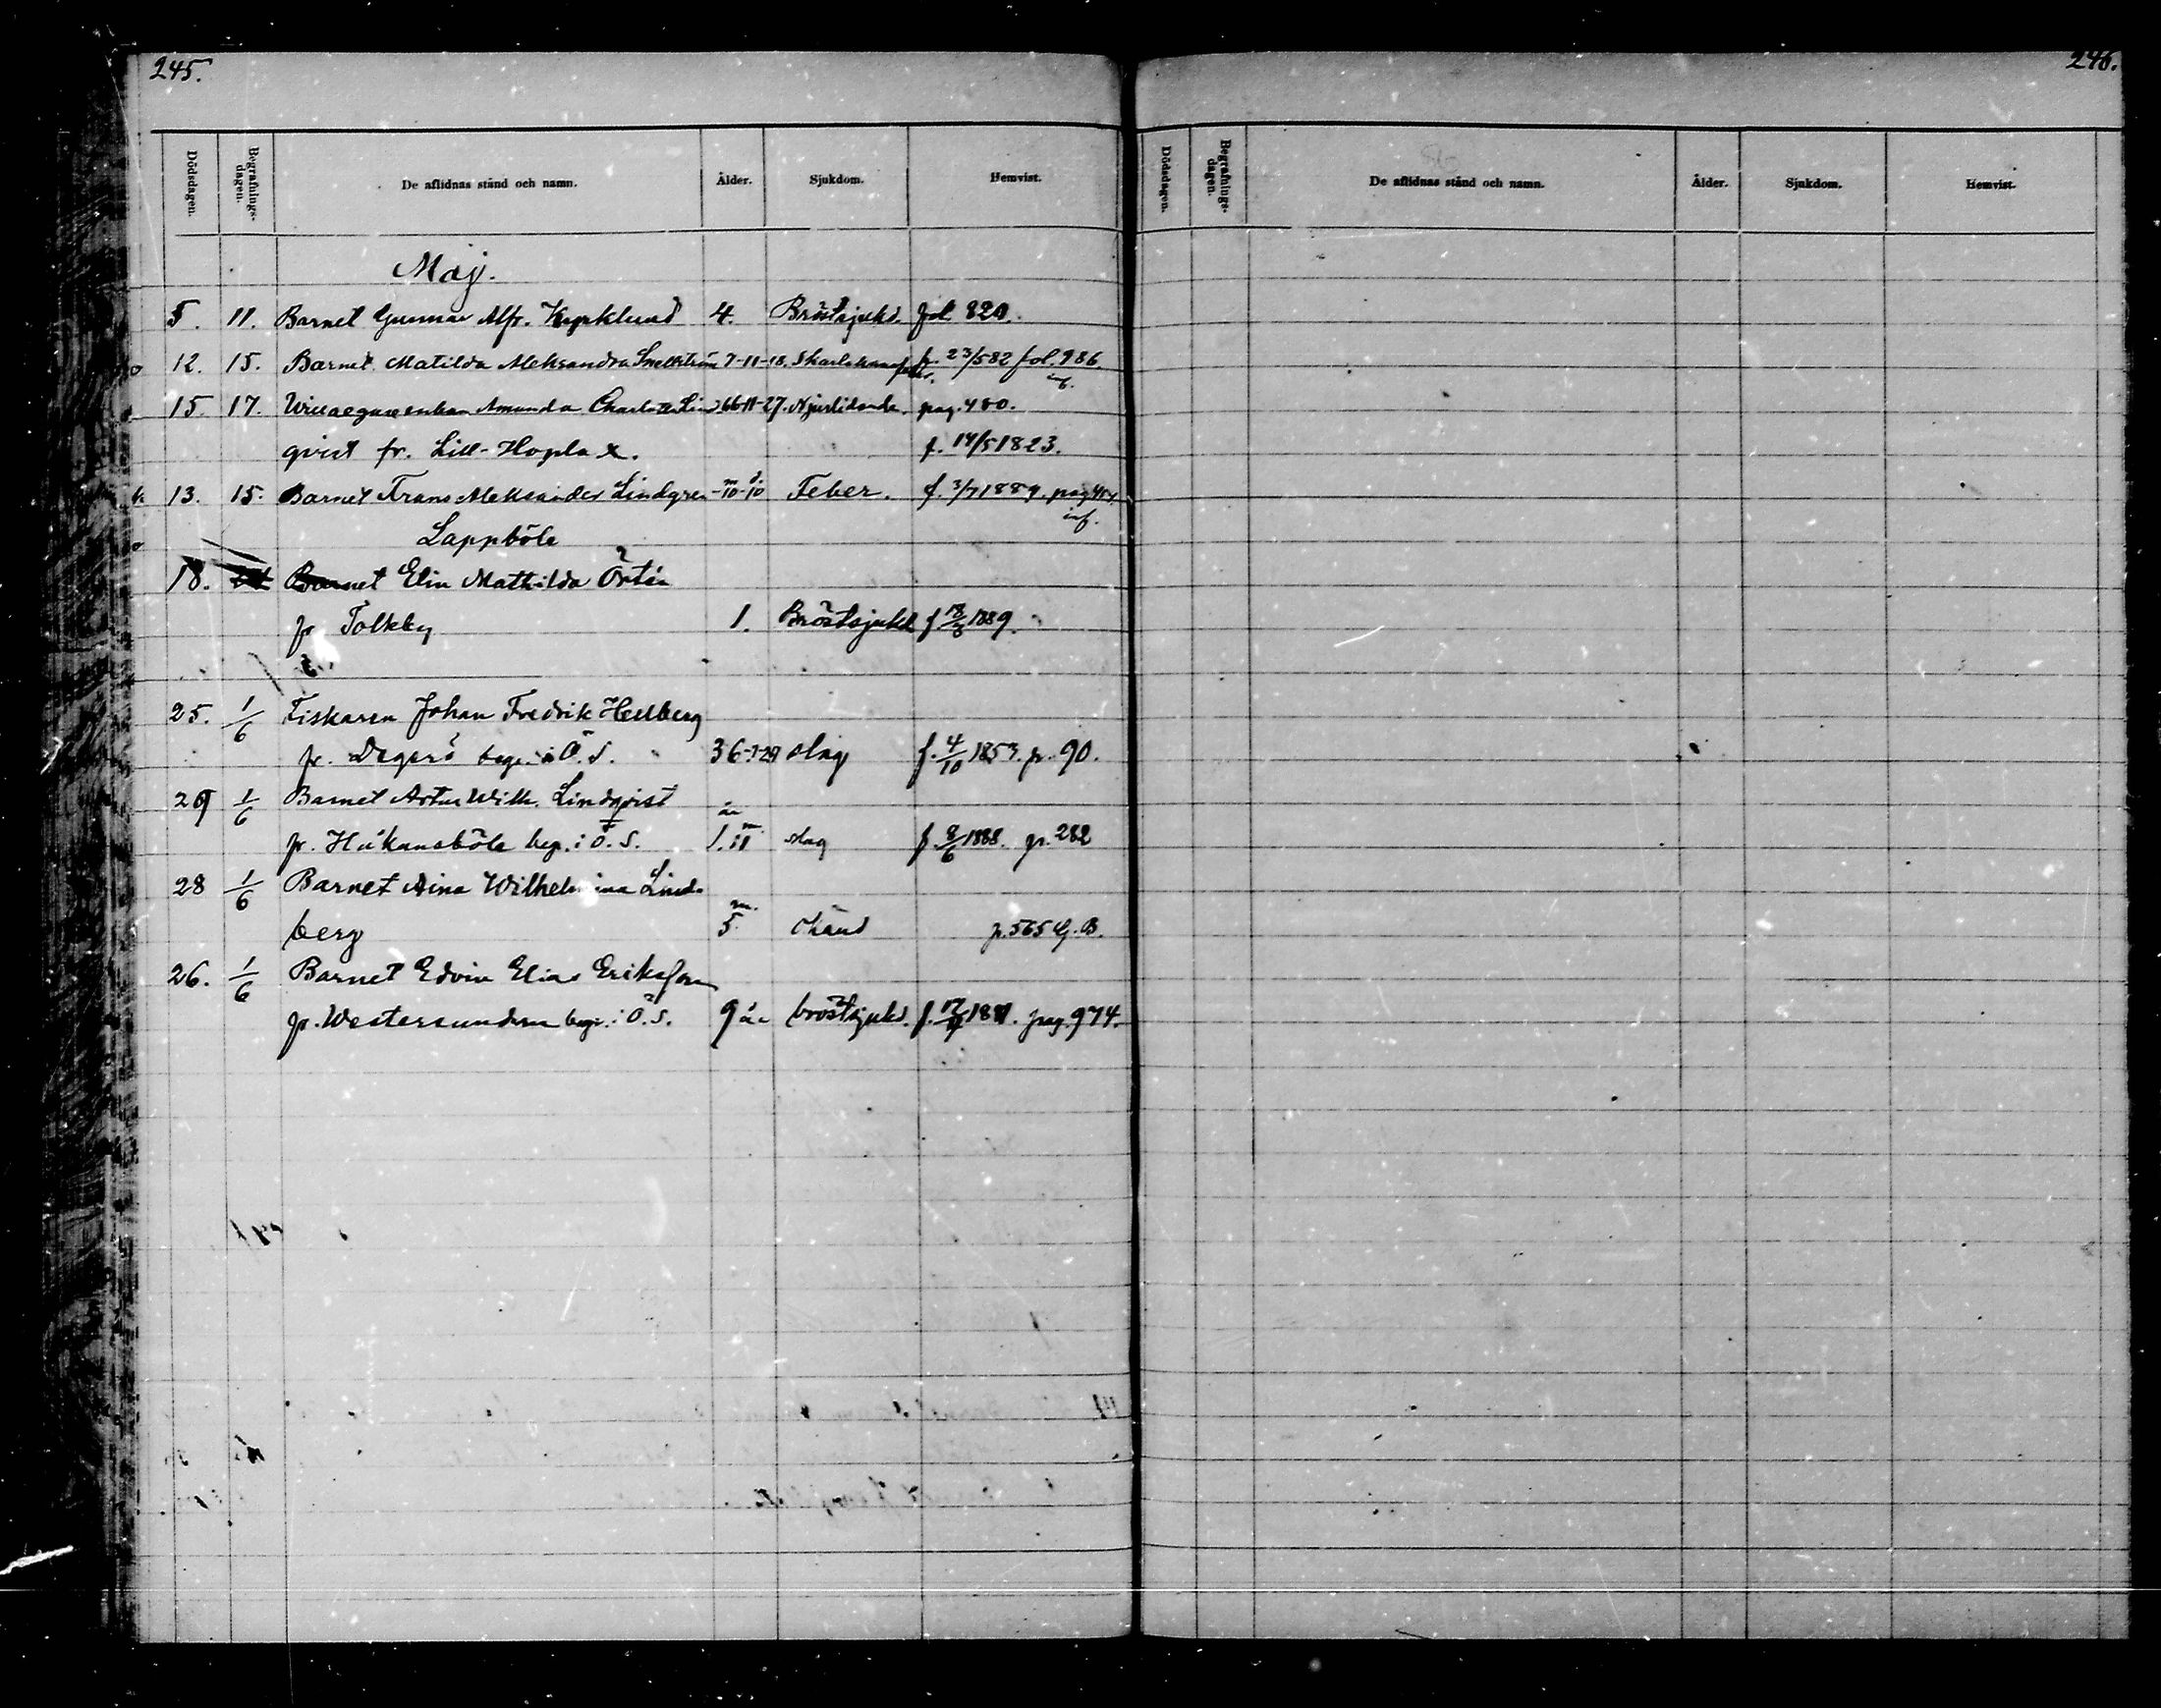 245.
246.
Dödsdagen. Begrafnings-dagen. De aflidnas stånd och namn. Ålder. Sjukdom. Hemvist.
Dödsdagen. Begrafnings-dagen. De aflidnas stånd och namn. Ålder. Sjukdom. Hemvist.
Maj.
5. 11. Barnet Gunnar Alfr. 4. Bröstsjukd. fol. 820.
12. 15. Barnet Matilda Aleksandra 7-11-18. 23/5 82 fol. 986. inf.
15. 17. Amanda Charlotta Lind 66-11-27. Njurlidande. pag. 480.
qvist fr. Lill-Hoplax. f. 14/5 1823.
13. 15. Barnet Frans Aleksander Lindgren m d -10-10 Feber. f. 3/7 1889. inf.
Lappböle
18. Barnet Elin Mathilda Örtén
fr Tolkby 1. Bröstsjukd 1889.
25. 1/6 Fiskaren Johan Fredrik Hellberg
fr. Degerö begr. i Ö. S. 36-7-21 slag f. 4/10 1853. p. 90.
29 1/6 Barnet Artur Wilh. Lindqvist
fr. Håkansböle beg. i Ö. S. år 1. 11 m. slag f. 8/6 1888. p. 282
28 1/6 Barnet Aina Wilhelmina Lind-
berg 5 m. okänd p. 565 G. B.
26. 1/6 Barnet Edvin Elias Eriksson
fr. Westersundom begr. i Ö. S. 9 år bröstsjukd. pag. 974.